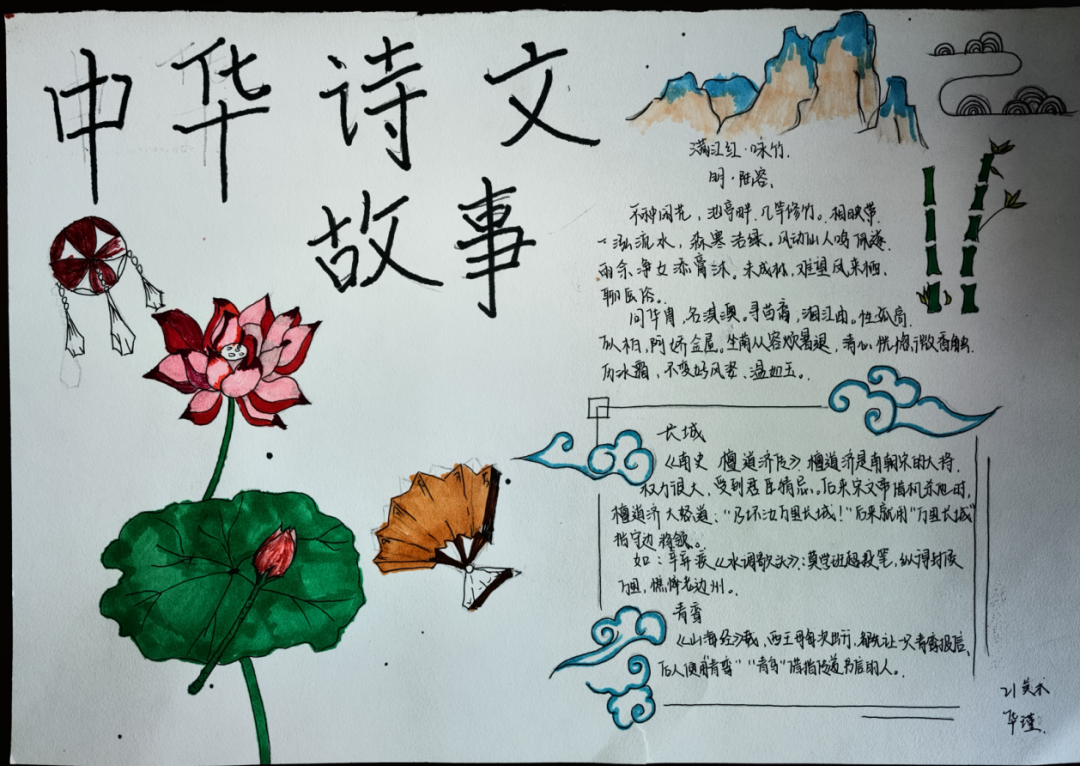 中华诗文
故事
满江红·咏竹.
明·陆容.
不种闲花,池亭畔、几竿修竹。相映带、
一泓流水,森寒洁绿。风动仙人鸣佩遂,
雨余净女添膏沐。未成林,难望凤来栖,
聊医俗。
问华胄,名淇澳。寻苗裔,湘江曲。性孤高
似柏,阿娇金屋。坐荫从容烦暑退,清心恍惚微香触.
历冰霜,不变好风姿,温如玉。
长城
《南史 檀道济传》:檀道济是南朝宋的大将,
权力很大,受到君臣猜忌。后来宋文帝借机杀他时,
檀道济大怒道:"乃坏汝万里长城!"后来就用"万里长城"
指守边将领。
如:辛弃疾《水调歌头》:莫学班超投笔,纵得封侯
万里,憔悴老边州。
青鸾
《山海经》载,西王母每次出行,都先让一只青鸾报信,
后人便用"青鸾""青鸟"借指传递书信的人。
21美术
华瑾.